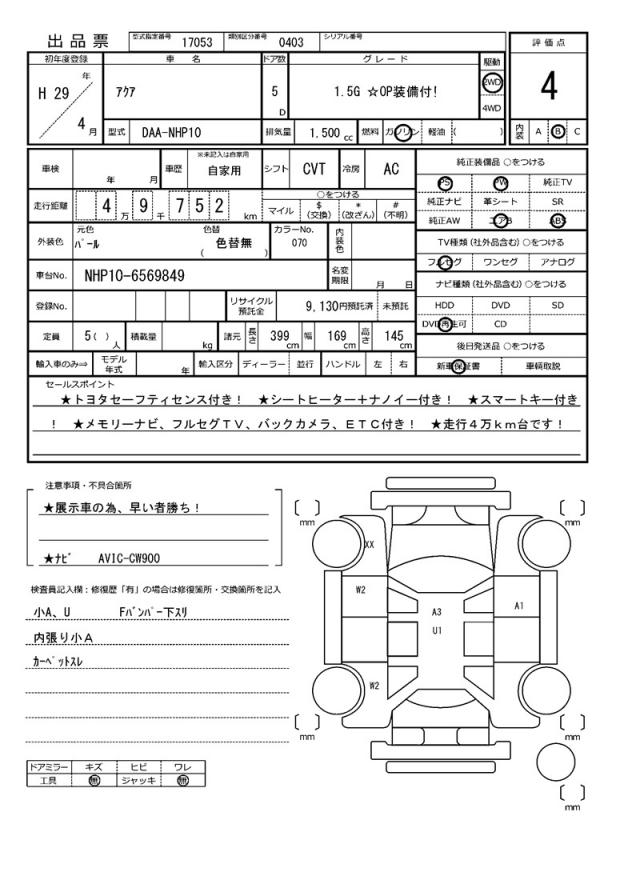 出品票 型式指定番号 17053 類別区分番号 0403 シリアル番号
初年度登録 車名 ドア数 グレード 駆動 評価点
H 29 年 4 月 アクア 5 D 1.5G ☆OP装備付! 2WD 4WD 4
型式 DAA-NHP10 排気量 1.500 cc 燃料 ガソリン 軽油 ( ) 内装 A B C
車検 年 月 車歴 ※未記入は自家用 自家用 シフト CVT 冷房 AC 純正装備品 ○をつける
PS PW 純正TV
走行距離 4 万 9 千 7 5 2 km ○をつける マイル $ (交換) * (改ざん) # (不明) 純正ナビ 革シート SR
純正AW エアB ABS
外装色 元色 パール 色替 ( 色替無 ) カラーNo. 070 内装色 TV種類(社外品含む)○をつける
フルセグ ワンセグ アナログ
車台No. NHP10-6569849 名変期限 月 日 ナビ種類(社外品含む)○をつける
登録No. リサイクル預託金 9,130円預託済 未預託 HDD DVD SD
DVD再生可 CD
定員 5( ) 人 積載量 kg 諸元 長さ 399 cm 幅 169 cm 高さ 145 cm 後日発送品 ○をつける
輸入車のみ⇒ モデル年式 年 輸入区分 ディーラー 並行 ハンドル 左 右 新車保証書 車輌取説
セールスポイント
★トヨタセーフティセンス付き! ★シートヒーター＋ナノイー付き! ★スマートキー付き
! ★メモリーナビ、フルセグTV、バックカメラ、ETC付き! ★走行4万km台です!
注意事項・不具合箇所
★展示車の為、早い者勝ち!
★ナビ AVIC-CW900
検査員記入欄：修復歴「有」の場合は修復箇所・交換箇所を記入
小A、U Fバンパー下スリ
内張り小A
カーペットスレ
ドアミラー キズ ヒビ ワレ
工具 無 ジャッキ 無
mm mm
XX
W2 A3 A1
U1
W2
mm mm
mm